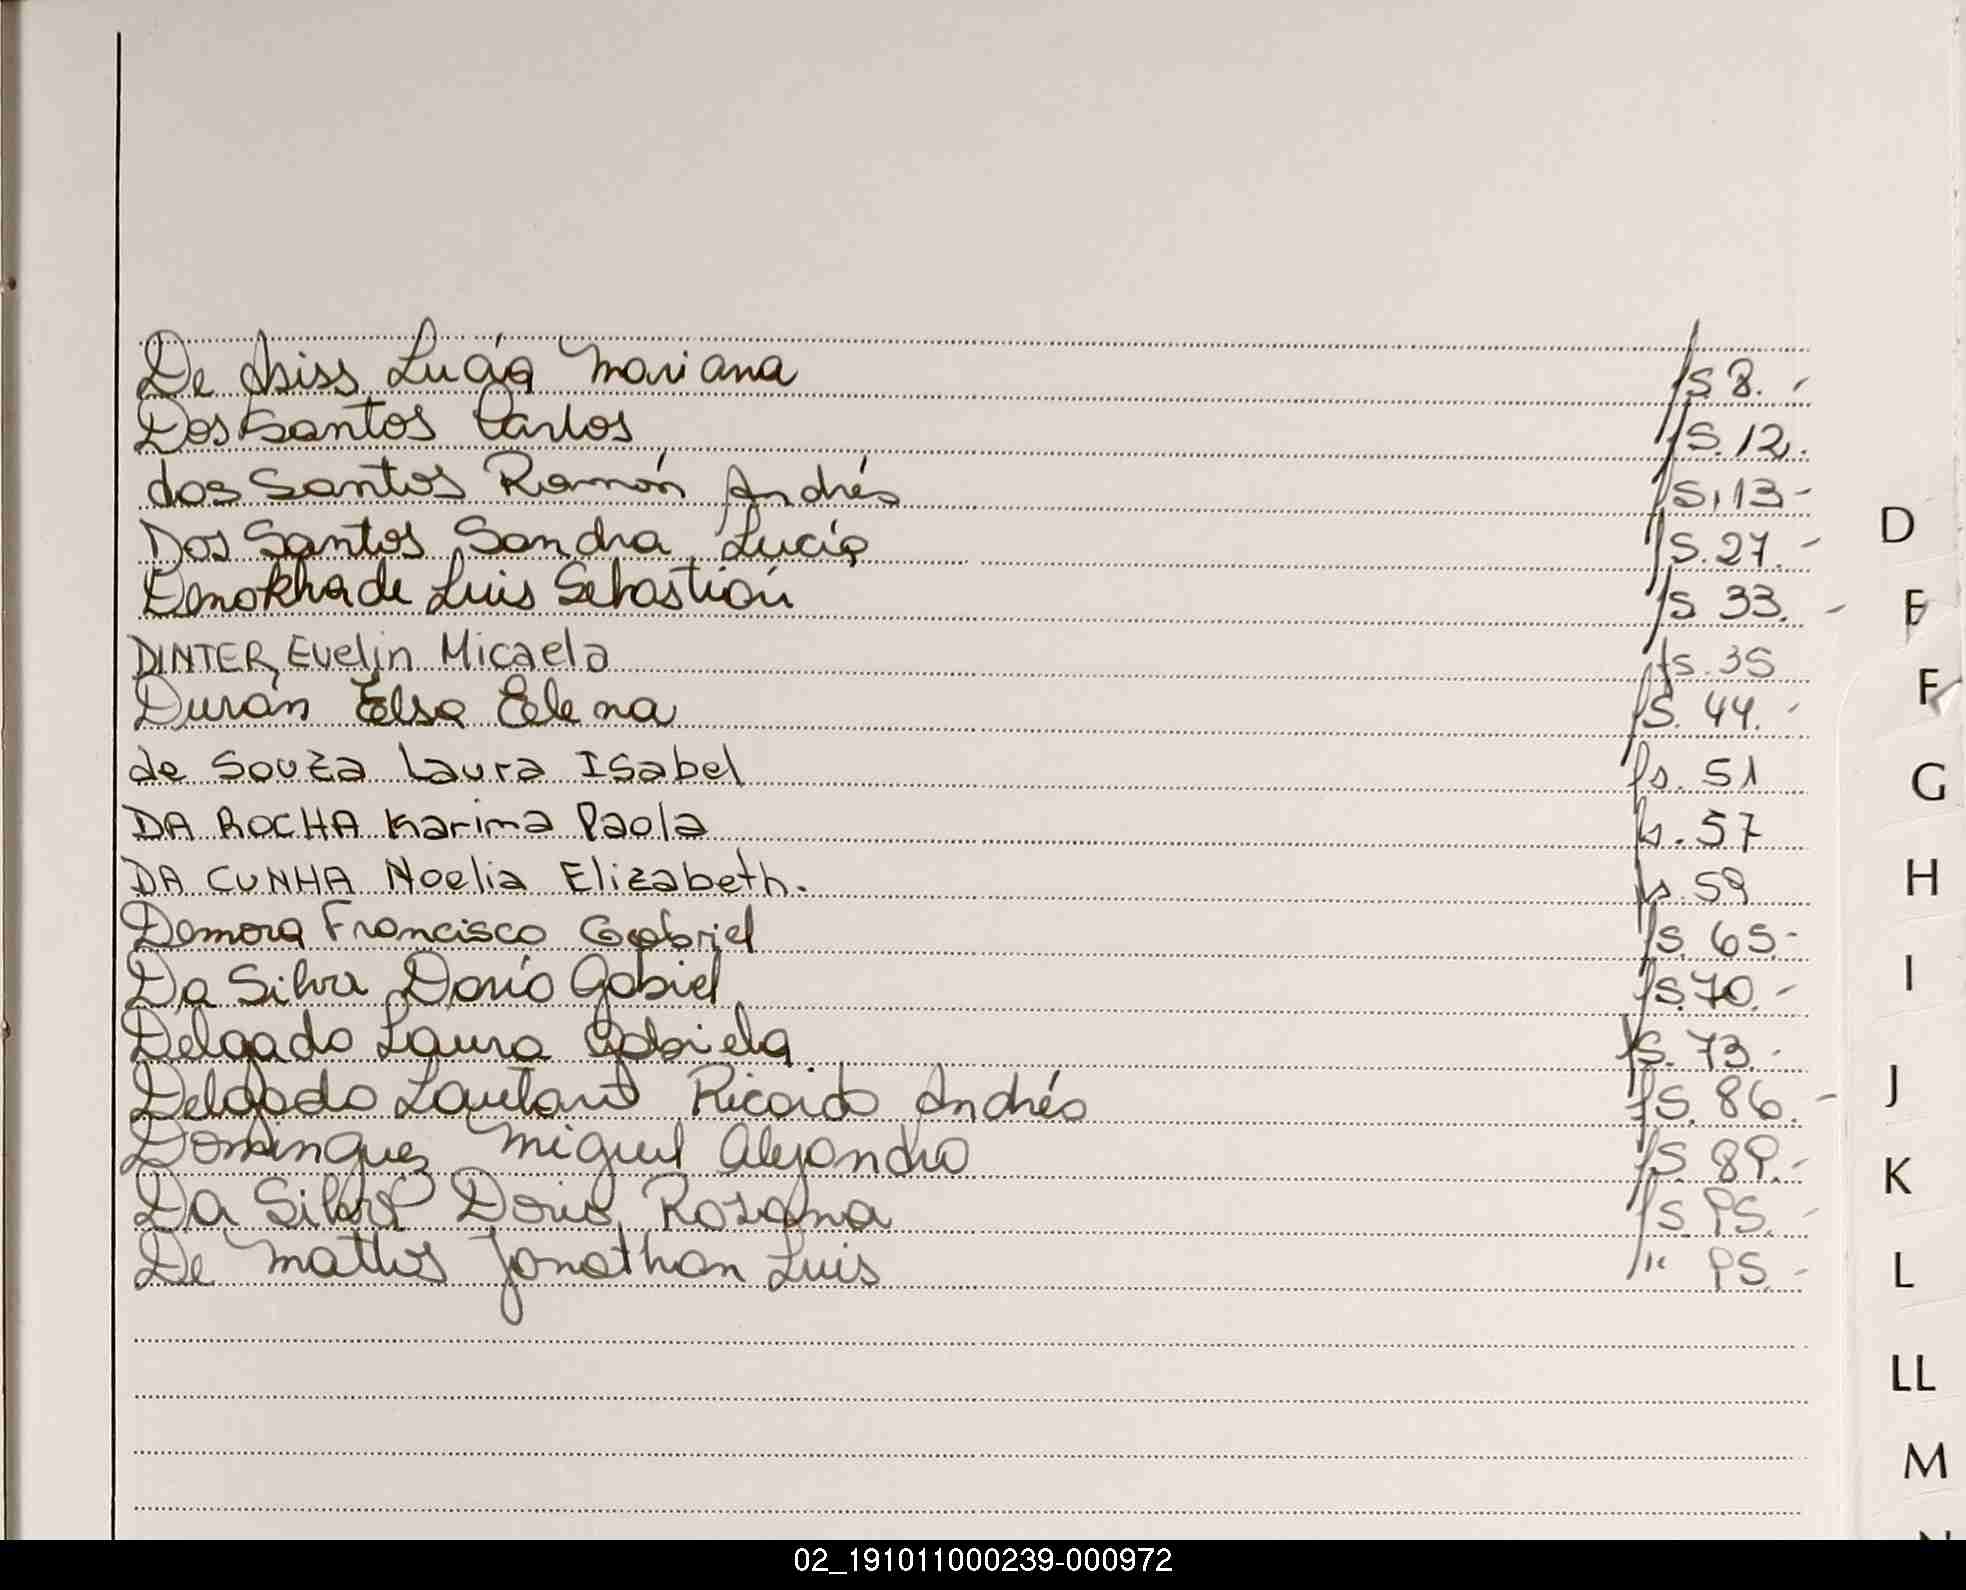 De Asiss Lucía Mariana fs 8.-
Dos Santos Carlos fs. 12.
dos Santos Ramón Andrés fs. 13-
Dos Santos Sandra Lucía fs. 27.-
Demokhade Luis Sebastián fs 33.-
DINTER, Evelin Micaela fs. 35
Durán Elsa Elena fs. 44.-
de Souza Laura Isabel fs. 51
DA ROCHA Karima Paola fs. 57
DA CUNHA Noelia Elizabeth. fs. 59
Demora Francisco Gabriel fs. 65.-
Da Silva Darío Gabiel fs 70.-
Delgado Laura Gabriela fs. 73.-
Delgado Lautaro Ricardo Andrés fs. 86.-
Dominguez Miguel Alejandro fs. 89.-
Da Silva Doris Rozana fs. 95.-
De Mattos Jonathan Luis " 95.-
D
E
F
G
H
I
J
K
L
LL
M
N
02_191011000239-000972